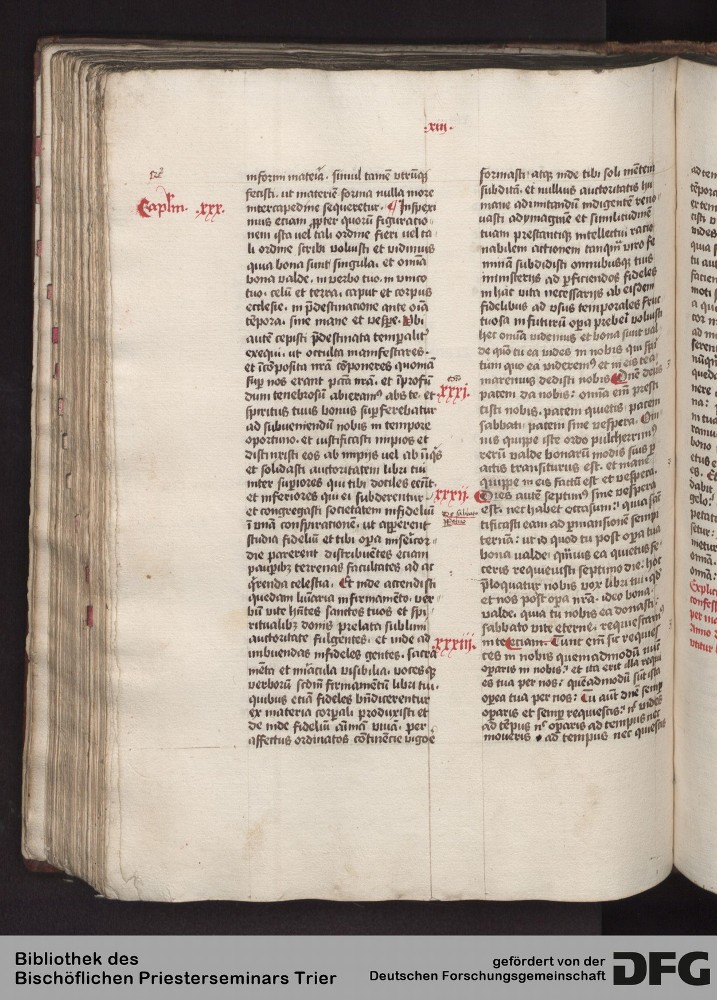 .xiii.
Caplm. .xxx.
inform materia. simul tamē utrūq̄
fecisti. ut materiē forma nulla more
intercapedine sequeretur. Inspexi
mus etiam ꝓpter quorū figuratio
nem ista vel tali ordine fieri vel ta
li ordine scribi voluisti et vidimus
quia bona sunt singula. et omīa
bona valde. in verbo tuo. in vnico
tuo. celū et terrā. caput et corpus
ecclesie. in p̄destinatione ante oīa
tēpora. sine mane et vespe. Vbi
autē cepisti p̄destinata temꝑalit᷑
exequi. ut occulta manifestares.
et īcōposita nr̄a cōponeres quoniā
suꝑ nos erant pctā nr̄a. et ī ꝓfūn
dum tenebrosū abieram᷒ abs te. et
spiritus tuus bonus suꝑferebatur
ad subueniendū nobis in tempore
oportuno. et iustificasti impios et
distinxisti eos ab impijs
et solidasti auctoritatem libri tui
inter suꝑiores qui tibi dociles eēnt.
et inferiores qui ei subderentur.
et congregasti societatem infideliū
ī vnā conspirationē. ut apꝑerent
studia fideliū et tibi oꝑa misericor
die parerent distribuētes etiam
pauꝑibꝫ terrenas facultates ad ac
q̄renda celestia. Et inde accendisti
quedam luīaria in firmamēto. ver
bū vite hn̄tes sanctos tuos et spi
ritualibꝫ donis prelata sublimi
auctoritate fulgentes. et inde ad
imbuendas infideles gentes. sacra
mēta et miracula visibilia. voces q̄
verborū scdm̄ firmamētū libri tui.
quibus etiā fideles bn̄dicerentur
ex materia corꝑali produxisti et
de inde fideliū aīmā viuā. per
affectus ordinatos cōtinēcie vigoꝛe
formasti. atqꝫ inde tibi soli mētem
subditā. et nullius auctoritatis hu
mane ad imitandū indigentē reno
uasti ad ymaginē et similitudinē
tuam prestantiqꝫ intellectui ratio
nabilem actionem tanqm̄ viro fe
minā subdidisti omnibusqꝫ tuis
ministerijs ad ꝑficiendos fideles
in hac vita necessarijs ab eisdem
fidelibus ad vsus temporales fruc
tuosa in futurū oꝑa preberi voluisti
hec omīa videmus et bona sunt val
de qm̄ tu ea vides in nobis qui spi
tum quo ea viderem᷒ et in eis te a
maremus dedisti nobis. Dn̄e deus
xxxi.
patem da nobis. omīa em̄ presti
tisti nobis. patem quietis. patem
sabbati. patem sine vespera. Om
nis quippe iste ordo pulcherrim᷒
rerū valde bonarū modis suis ꝑ
actis transiturus est. et mane
quippe in eis factū est et vespera.
xxxii.
Dies autē septim᷒ sine vespera
est. nec habet occasum. quia sanc
tificasti eam ad ꝑmansionē sempi
ternā. ut id quod tu post oꝑa tua
bona valde. qm̄uis ea quietus fe
ceris requieuisti septimo die. hoc
p̄loquatur nobis vox libri tui. qd̓
et nos post oꝑa nr̄a. ideo bona
valde. quia tu nobis ea donasti.
sabbato vite eterne. requiescam᷒
xxxiij.
in te. Etiam. Tunc em̄ sic requies
ces in nobis quemadmodū nūc
oꝑaris in nobis. et ita erit illa requi
es tua per nos. queadmodū sūt ista
oꝑa tua per nos. Tu aūt dn̄e semꝑ
oꝑaris et semꝑ requiescis. nec vides
ad tēpus nec oꝑaris ad tempus nec
moueris. ad tempus nec quiescis
Bibliothek des
Bischöflichen Priesterseminars Trier
gefördert von der
Deutschen Forschungsgemeinschaft
DFG